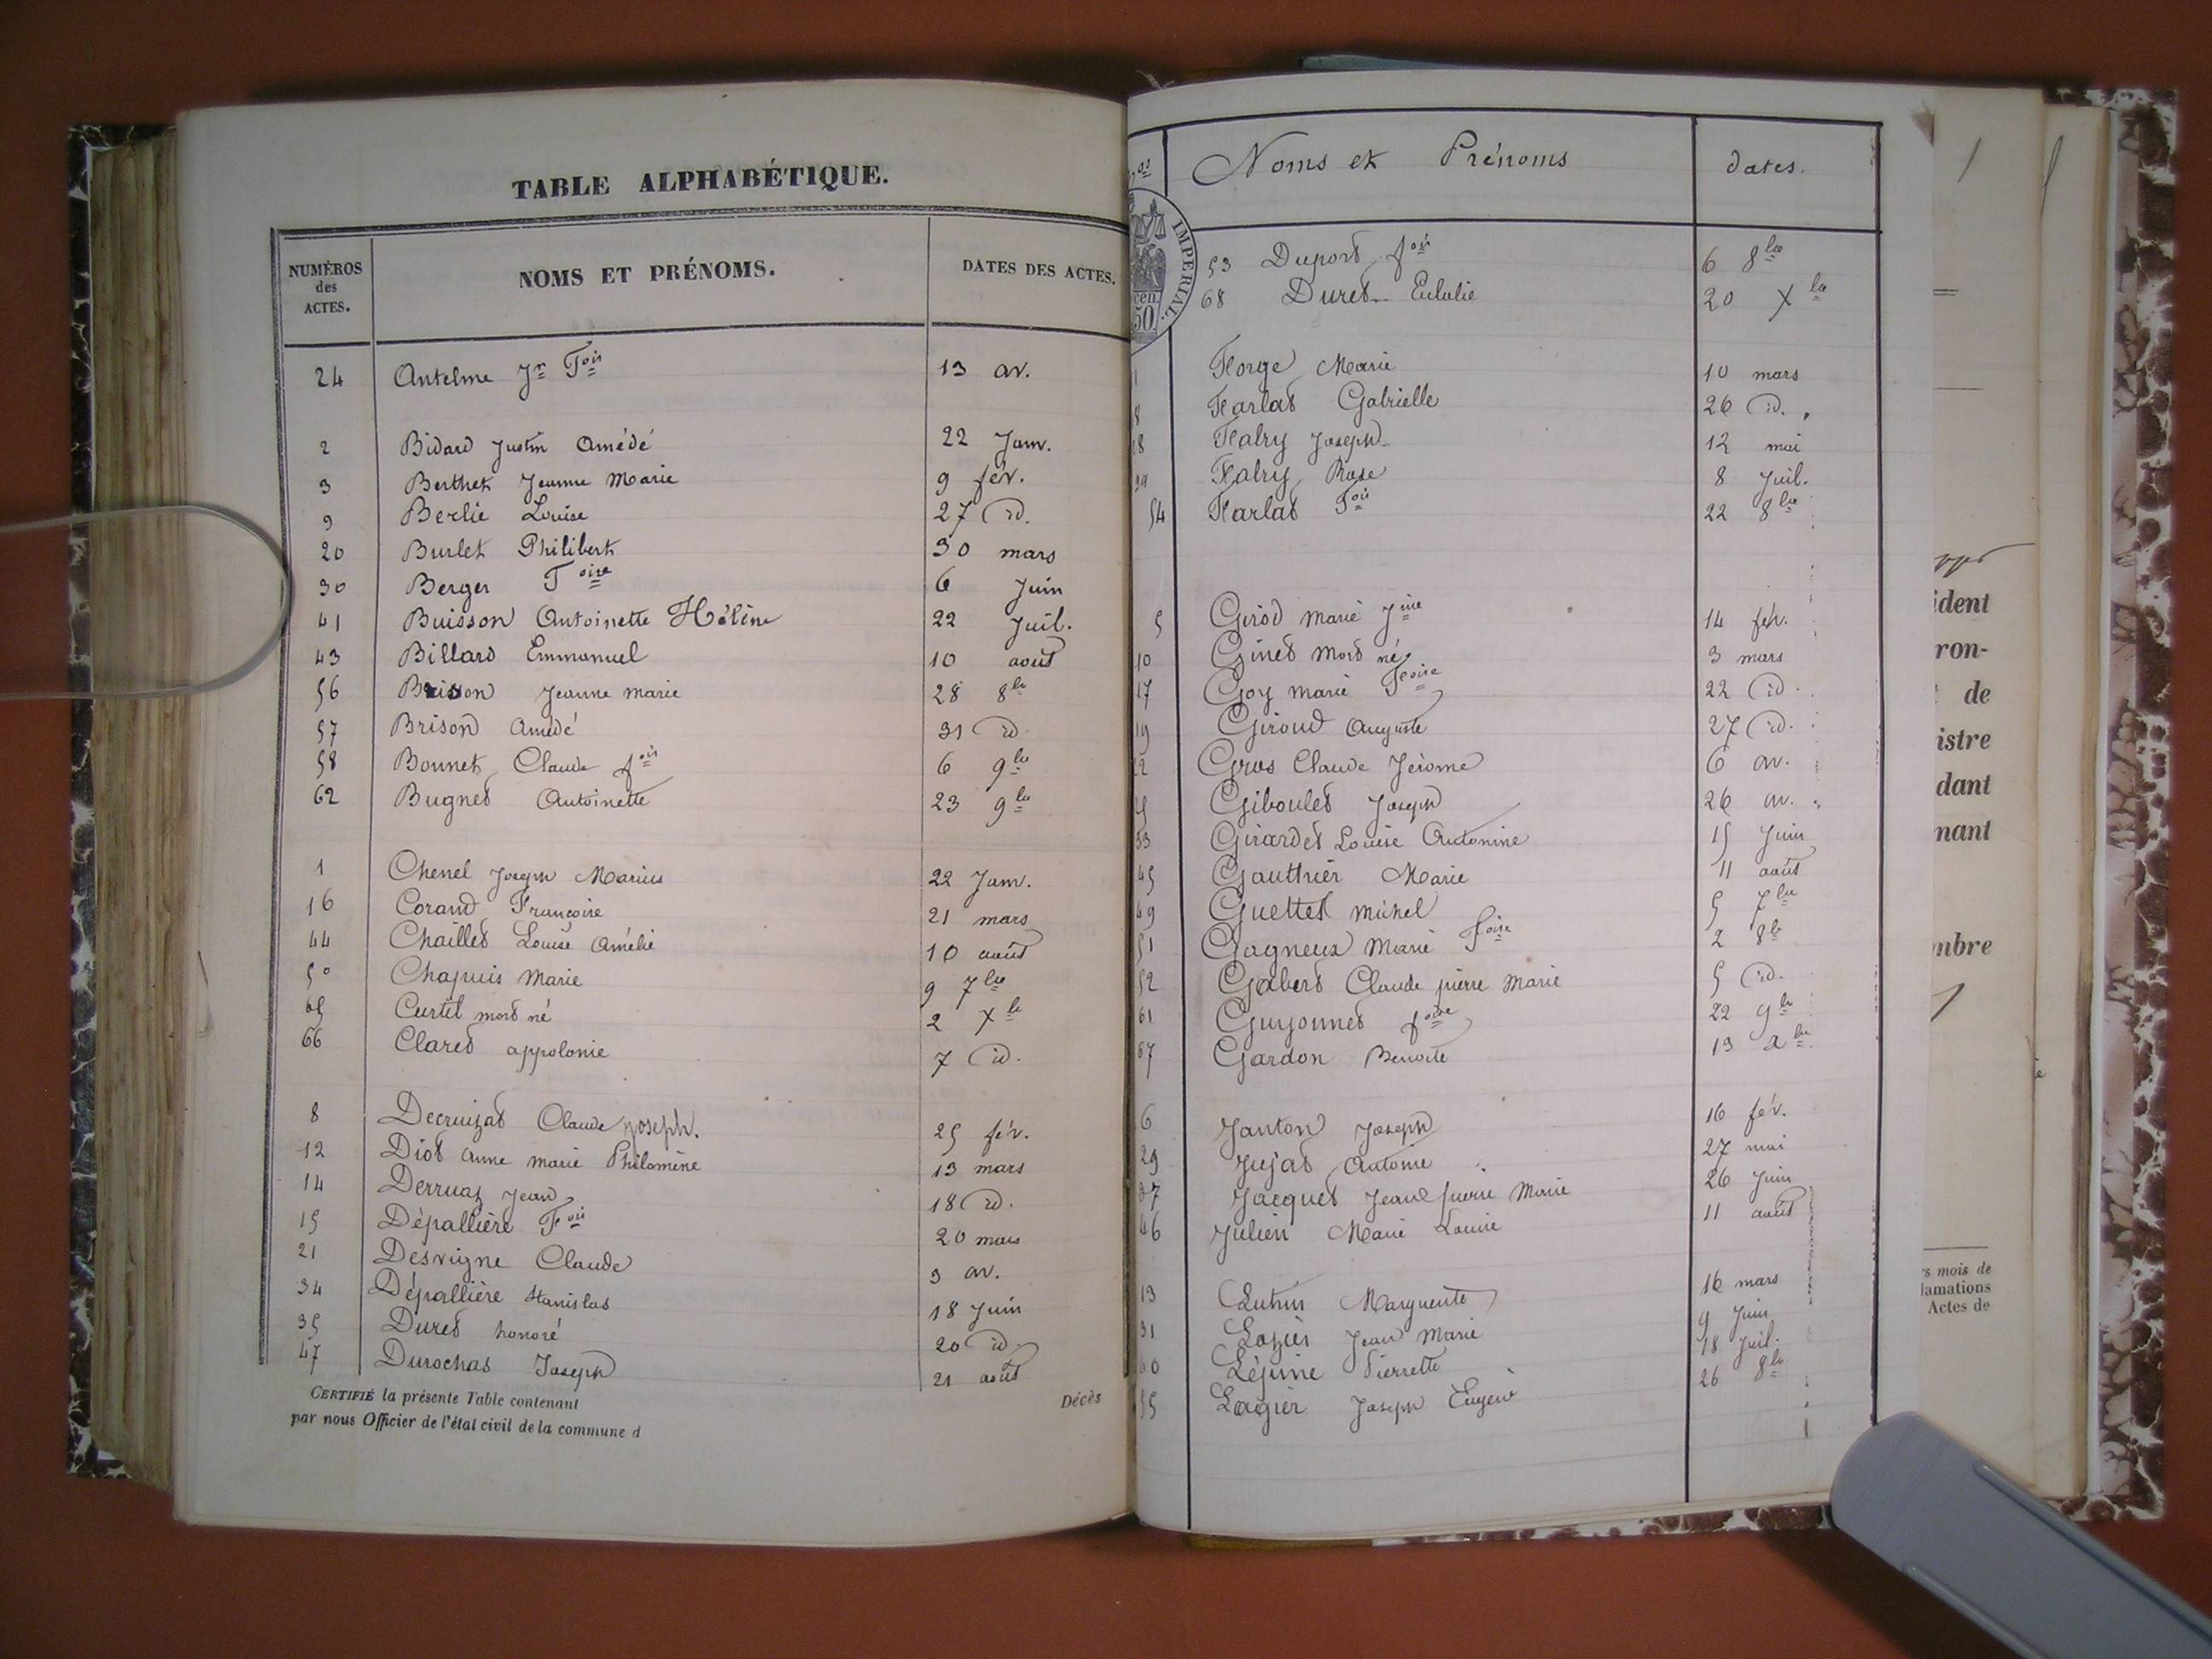 TABLE ALPHABÉTIQUE.
NUMÉROS des ACTES. NOMS ET PRÉNOMS. DATES DES ACTES.
24 Antelme Jn Fois 13 av.
2 Bidard Justin Amédé 22 Janv.
3 Berthet Jeanne Marie 9 fév.
9 Berlie Louise 27 id.
20 Burlet Philibert 30 mars
30 Berger Foise 6 Juin
41 Buisson Antoinette Hélène 22 Juil.
43 Billard Emmanuel 10 août
56 Brison Jeanne marie 28 8bre
57 Brison Amédé 31 id.
58 Bonnet Claude fois 6 9bre
62 Bugnet Antoinette 23 9bre
1 Chenel Joseph Marius 22 Janv.
16 Corand Françoise 21 mars
44 Chaillet Louise Amélie 10 août
50 Chapuis Marie 9 7bre
65 Curtil mort né 2 Xbre
66 Claret appolonie 7 id.
8 Decruizat Claude joseph. 25 fév.
12 Diot anne marie Philomène 13 mars
14 Derruaz Jean 18 id.
15 Dépallière Fois 20 mars
21 Desvigne Claude 3 av.
34 Dépallière Stanislas 18 Juin
35 Duret honoré 20 id
47 Durochat Joseph 21 août
CERTIFIÉ la présente Table contenant Décès
par nous Officier de l'état civil de la commune d
nos Noms et Prénoms dates.
IMPERIAL.
cen.
50
53 Duport fois 6 8bre
68 Duret Eulalie 20 Xbre
Forge Marie 10 mars
Farlat Gabrielle 26 id.
Falry Joseph 12 mai
Falry Rose 8 Juil.
54 Farlat Fois 22 8bre
5 Girod marie Jine 14 fév.
10 Ginet mort né 3 mars
17 Goy marie Fcoise 22 id.
19 Giroud Auguste 27 id.
22 Gros Claude Jérome 6 av.
Giboulet Joseph 26 av.
33 Girardet Louise Antonine 15 Juin
45 Gauthier Marie 11 août
49 Guettet michel 5 7bre
51 Gagneux Marie Foise 2 8bre
52 Galbert Claude pierre Marie 5 id.
61 Guyonnet foise 22 9bre
67 Gardon Benoite 13 Xbre
6 Janton Joseph 16 fév.
29 Jujat Antoine 27 mai
37 Jacquet Jean pierre Marie 26 Juin
46 Julien Marie Louise 11 août
13 Luthin Marguerite 16 mars
31 Lozier Jean Marie 9 Juin
Lépine Pierrette 18 Juil.
55 Lagier Joseph Eugène 26 8bre
ident
ron-
de
istre
dant
nant
mbre
s mois de
lamations
Actes de